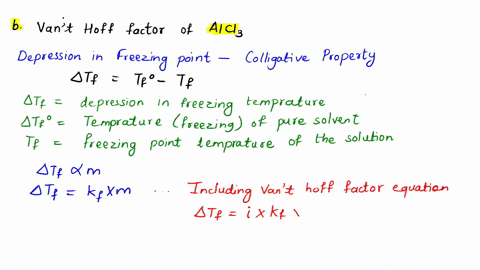 b. Van't Hoff factor of AlCl₃
Depression in Freezing point — Colligative Property
ΔTf = Tf° - Tf
ΔTf = depression in freezing temprature
ΔTf° = Temprature (freezing) of pure solvent
Tf = freezing point temprature of the solution
ΔTf ∝ m
ΔTf = kf × m ... Including Van't hoff factor equation
ΔTf = i × kf \